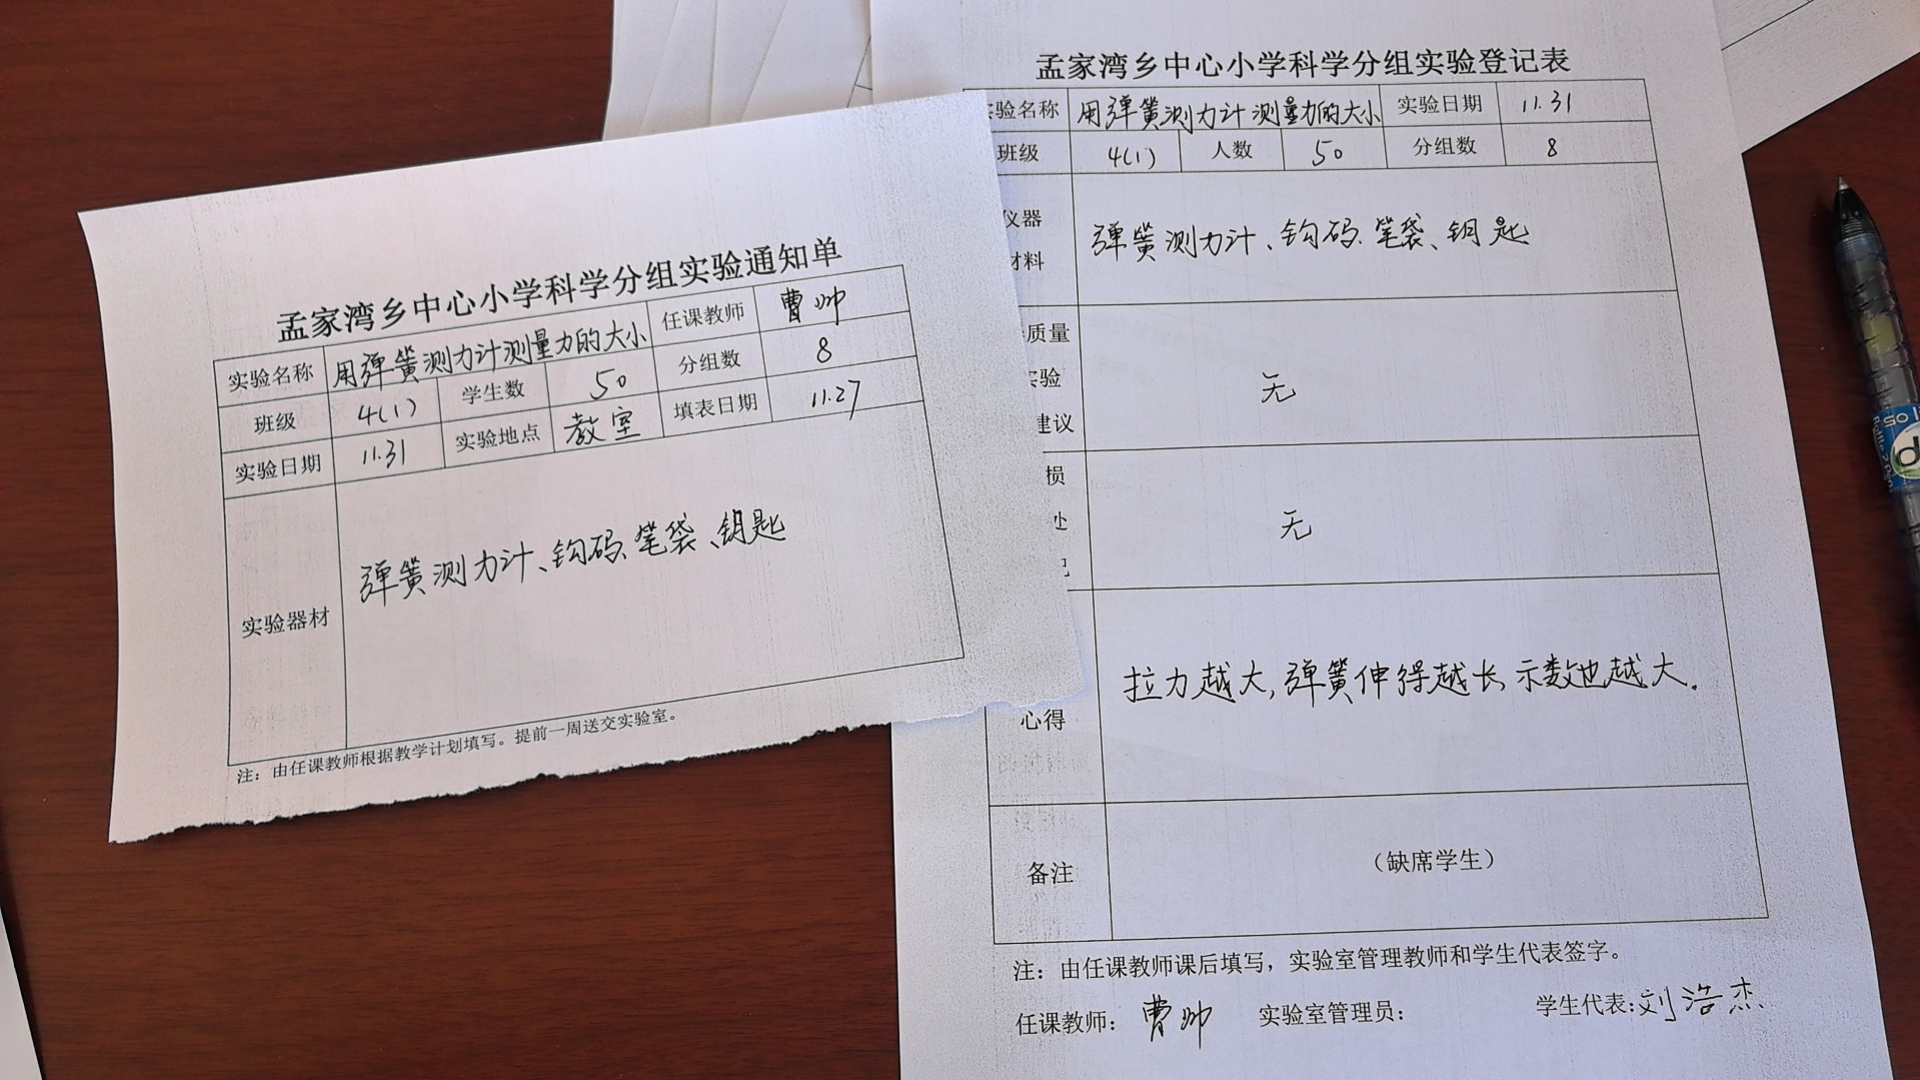 孟家湾乡中心小学科学分组实验通知单
实验名称 用弹簧测力计测量力的大小 任课教师 曹帅
班级 4(1) 学生数 50 分组数 8
实验日期 11.31 实验地点 教室 填表日期 11.27
实验器材 弹簧测力计、钩码、笔袋、钥匙
注：由任课教师根据教学计划填写。提前一周送交实验室。
孟家湾乡中心小学科学分组实验登记表
实验名称 用弹簧测力计测量力的大小 实验日期 11.31
班级 4(1) 人数 50 分组数 8
仪器
材料 弹簧测力计、钩码、笔袋、钥匙
质量
实验 无
建议
损
处 无
心得 拉力越大,弹簧伸得越长,示数也越大.
备注 （缺席学生）
注：由任课教师课后填写，实验室管理教师和学生代表签字。
任课教师：曹帅 实验室管理员： 学生代表:刘浩杰